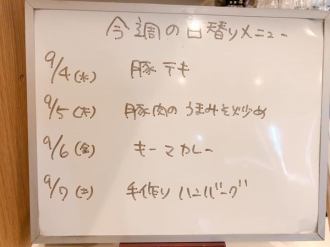 今週の日替りメニュー
9/4(水) 豚テキ
9/5(木) 豚肉のうまみそ炒め
9/6(金) キーマカレー
9/7(土) 手作りハンバーグ